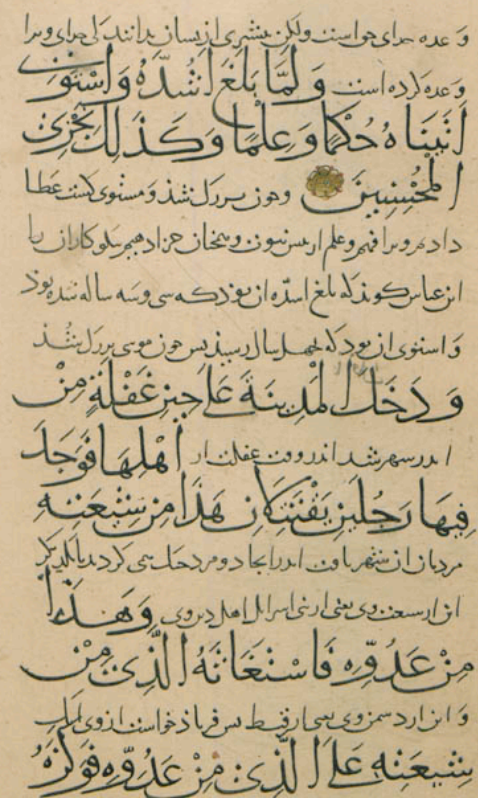 وعده خدای حق است ولکن بیشتری از یشان ندانند کی خدای ویرا
وعده کرده است وَلَمَّا بَلَغَ اَشُدَّهُ وَاسْتَوٰى
اٰتَيْنَاهُ حُكْمًا وَعِلْمًا وَكَذٰلِكَ نَجْزِى
الْمُحْسِنِينَ وجون بزرك شذ و مستوی كشت عطا
دادیم ویرا فهم و علم از بیش نبوت و همجنان جزا دهیم نیکوکاران را
ابن عباس کوید که بلغ اشده ان بوذ که سی و سه ساله شده بوذ
و استوی ان بود که بجهل سال رسیذ بس جون موسی بزرك شذ
وَدَخَلَ الْمَدِينَةَ عَلٰى حِينِ غَفْلَةٍ مِنْ
اندر شهر شد اندر وقت غفلت از اَهْلِهَا فَوَجَدَ
فِيهَا رَجُلَيْنِ يَقْتَتِلَانِ هٰذَا مِنْ شِيعَتِهِ
مردمان ان شهر یافت اندر انجا دو مرد جنك می کردند با یکدیکر
این از شیعت وی یعنی از بنی اسرائل اهل دین وی وَهٰذَا
مِنْ عَدُوِّهِ فَاسْتَغَاثَهُ الَّذِى مِنْ
و این از دشمن وی یعنی از قبط بس فریاذ خواست از وی انك
شِيعَتِهِ عَلَى الَّذِى مِنْ عَدُوِّهِ فَوَكَزَهُ